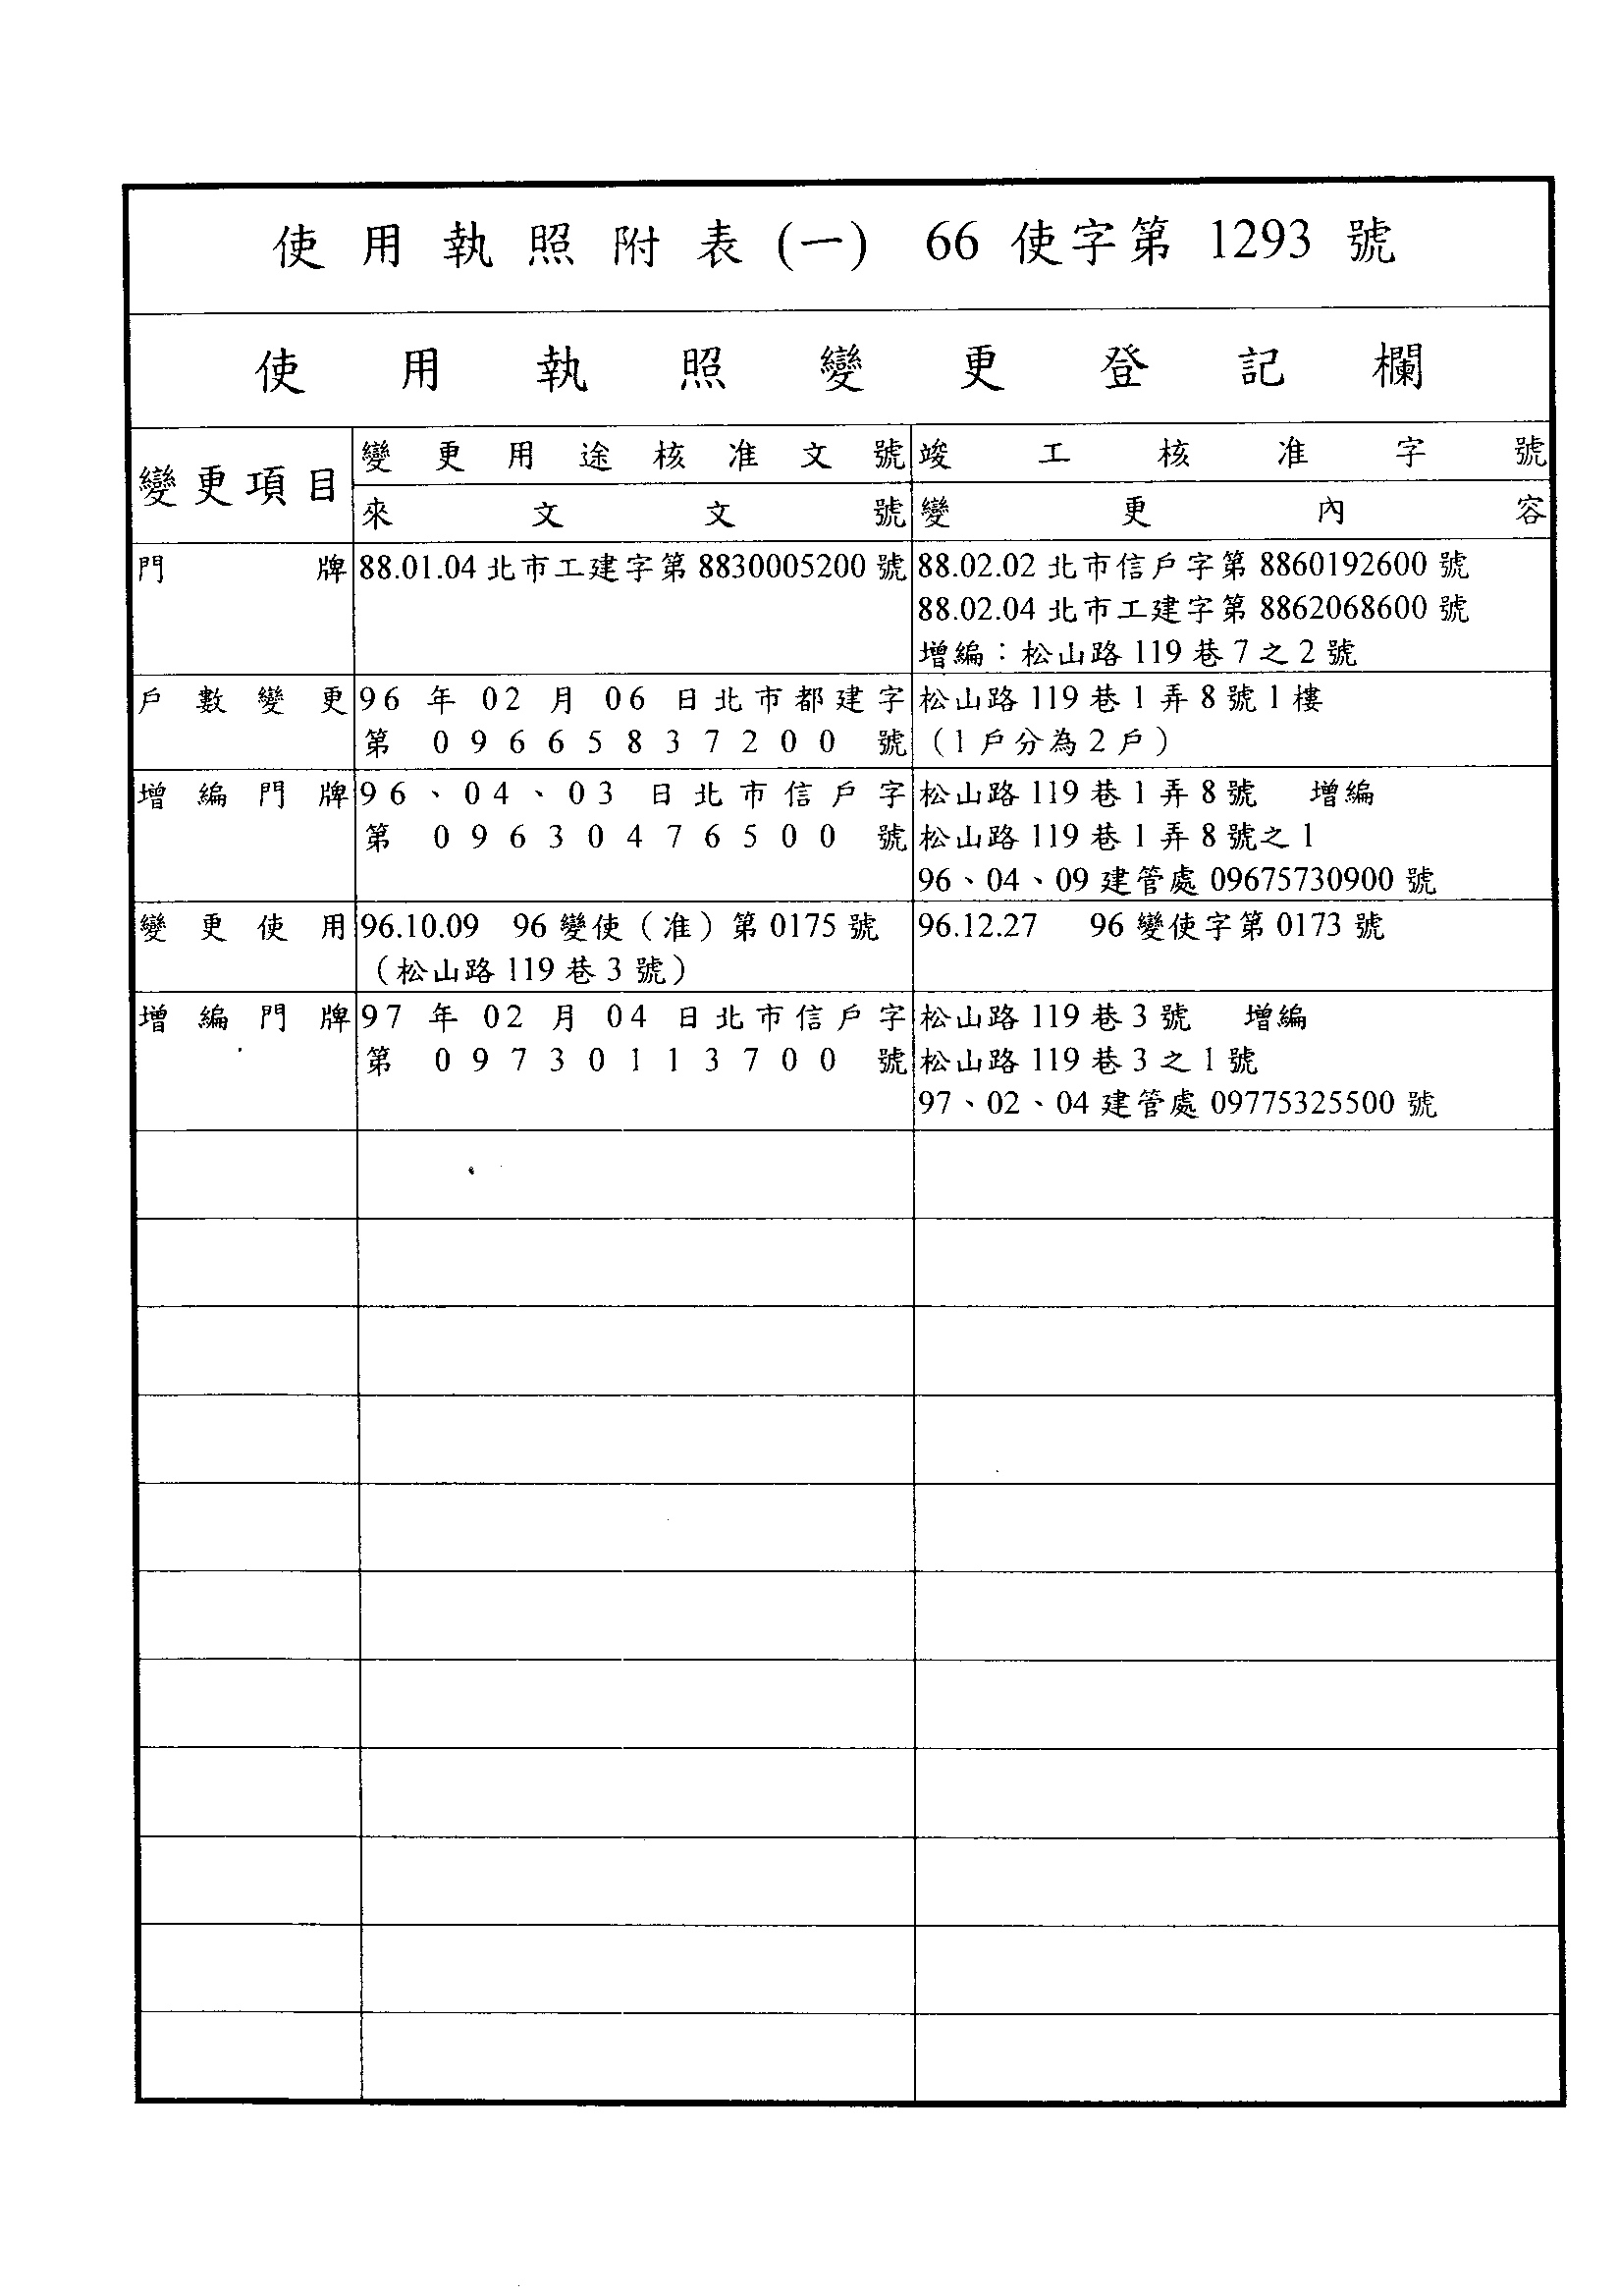 使用執照附表(一) 66 使字第 1293 號
使用執照變更登記欄
變更項目
變更用途核准文號
竣工核准字號
來文文號
變更內容
門牌
88.01.04 北市工建字第 8830005200 號
88.02.02 北市信戶字第 8860192600 號
88.02.04 北市工建字第 8862068600 號
增編：松山路 119 巷 7 之 2 號
戶數變更
96 年 02 月 06 日北市都建字
第 09665837200 號
松山路 119 巷 1 弄 8 號 1 樓
（1 戶分為 2 戶）
增編門牌
96、04、03 日北市信戶字
第 09630476500 號
松山路 119 巷 1 弄 8 號 增編
松山路 119 巷 1 弄 8 號之 1
96、04、09 建管處 09675730900 號
變更使用
96.10.09 96 變使（准）第 0175 號
（松山路 119 巷 3 號）
96.12.27 96 變使字第 0173 號
增編門牌
97 年 02 月 04 日北市信戶字
第 09730113700 號
松山路 119 巷 3 號 增編
松山路 119 巷 3 之 1 號
97、02、04 建管處 09775325500 號